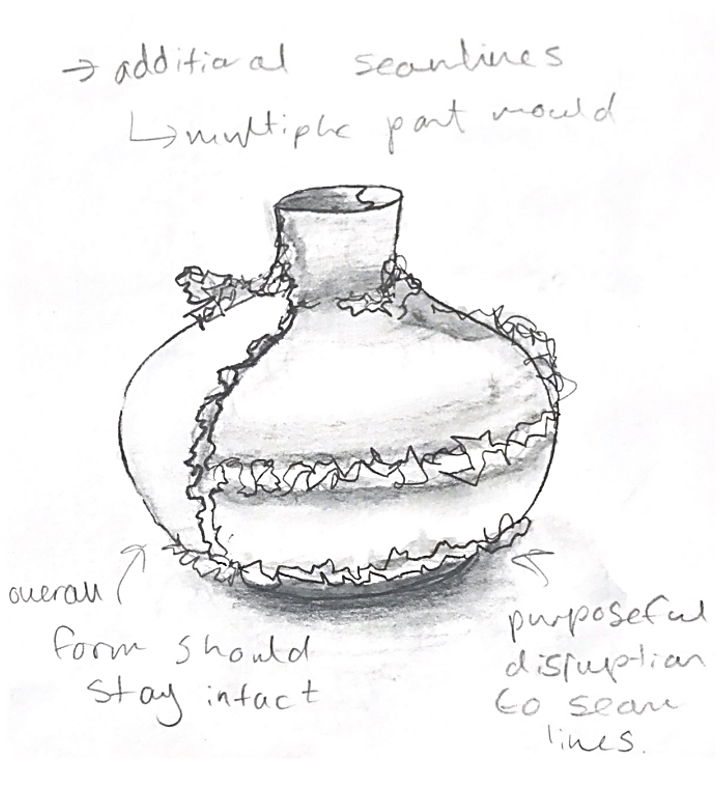 → additional seamlines
↳ multiple part mould
overall
form should
stay intact
purposeful
disruption
to seam
lines.